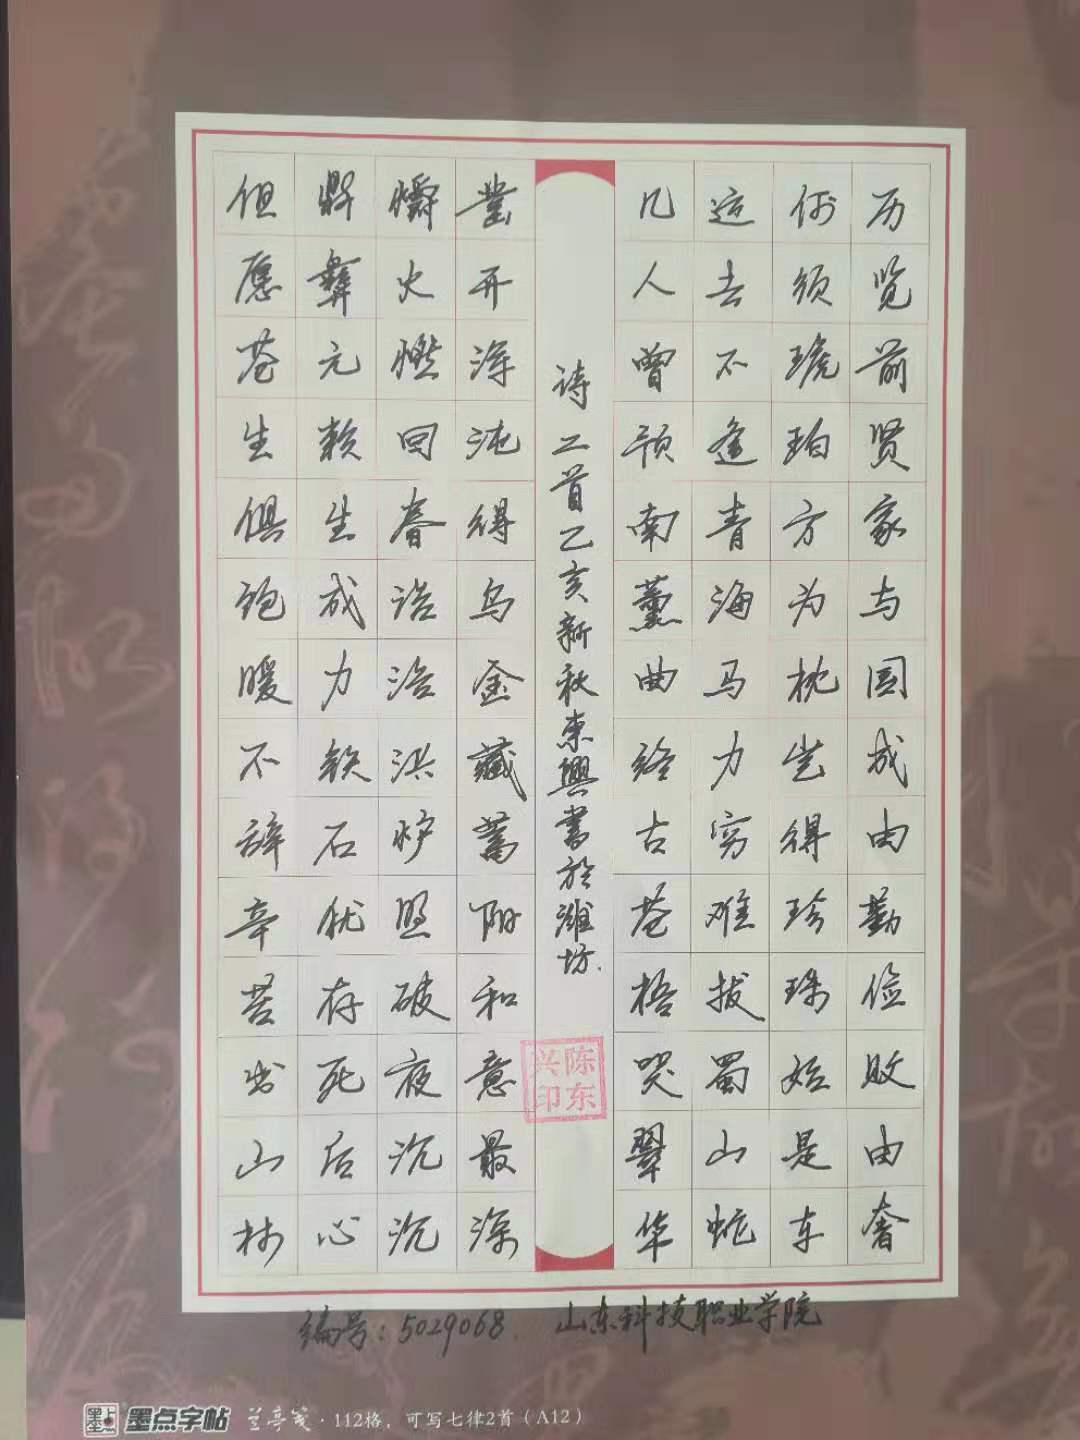 历览前贤家与国成由勤俭败由奢
何须琥珀方为枕岂得珍珠始是车
运去不逢青海马力穷难拔蜀山蛇
几人曾预南薰曲终古苍梧哭翠华
诗二首乙亥新秋东兴書於潍坊
陈东兴印
凿开浑沌得乌金藏蓄阳和意最深
爝火燃回春浩浩洪炉照破夜沉沉
鼎彝元赖生成力铁石犹存死后心
但愿苍生俱饱暖不辞辛苦出山林
编号:5029068 山东科技职业学院
墨点字帖 兰亭笺·112格，可写七律2首（A12）